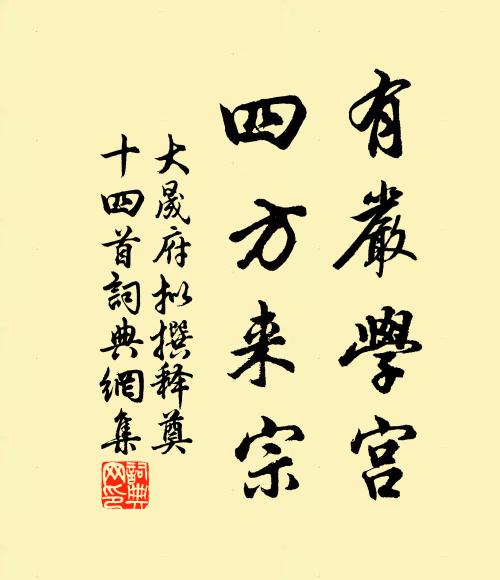 有嚴學宮
四方来宗
大晟府拟撰释奠
十四首詞典網集
詞典網印